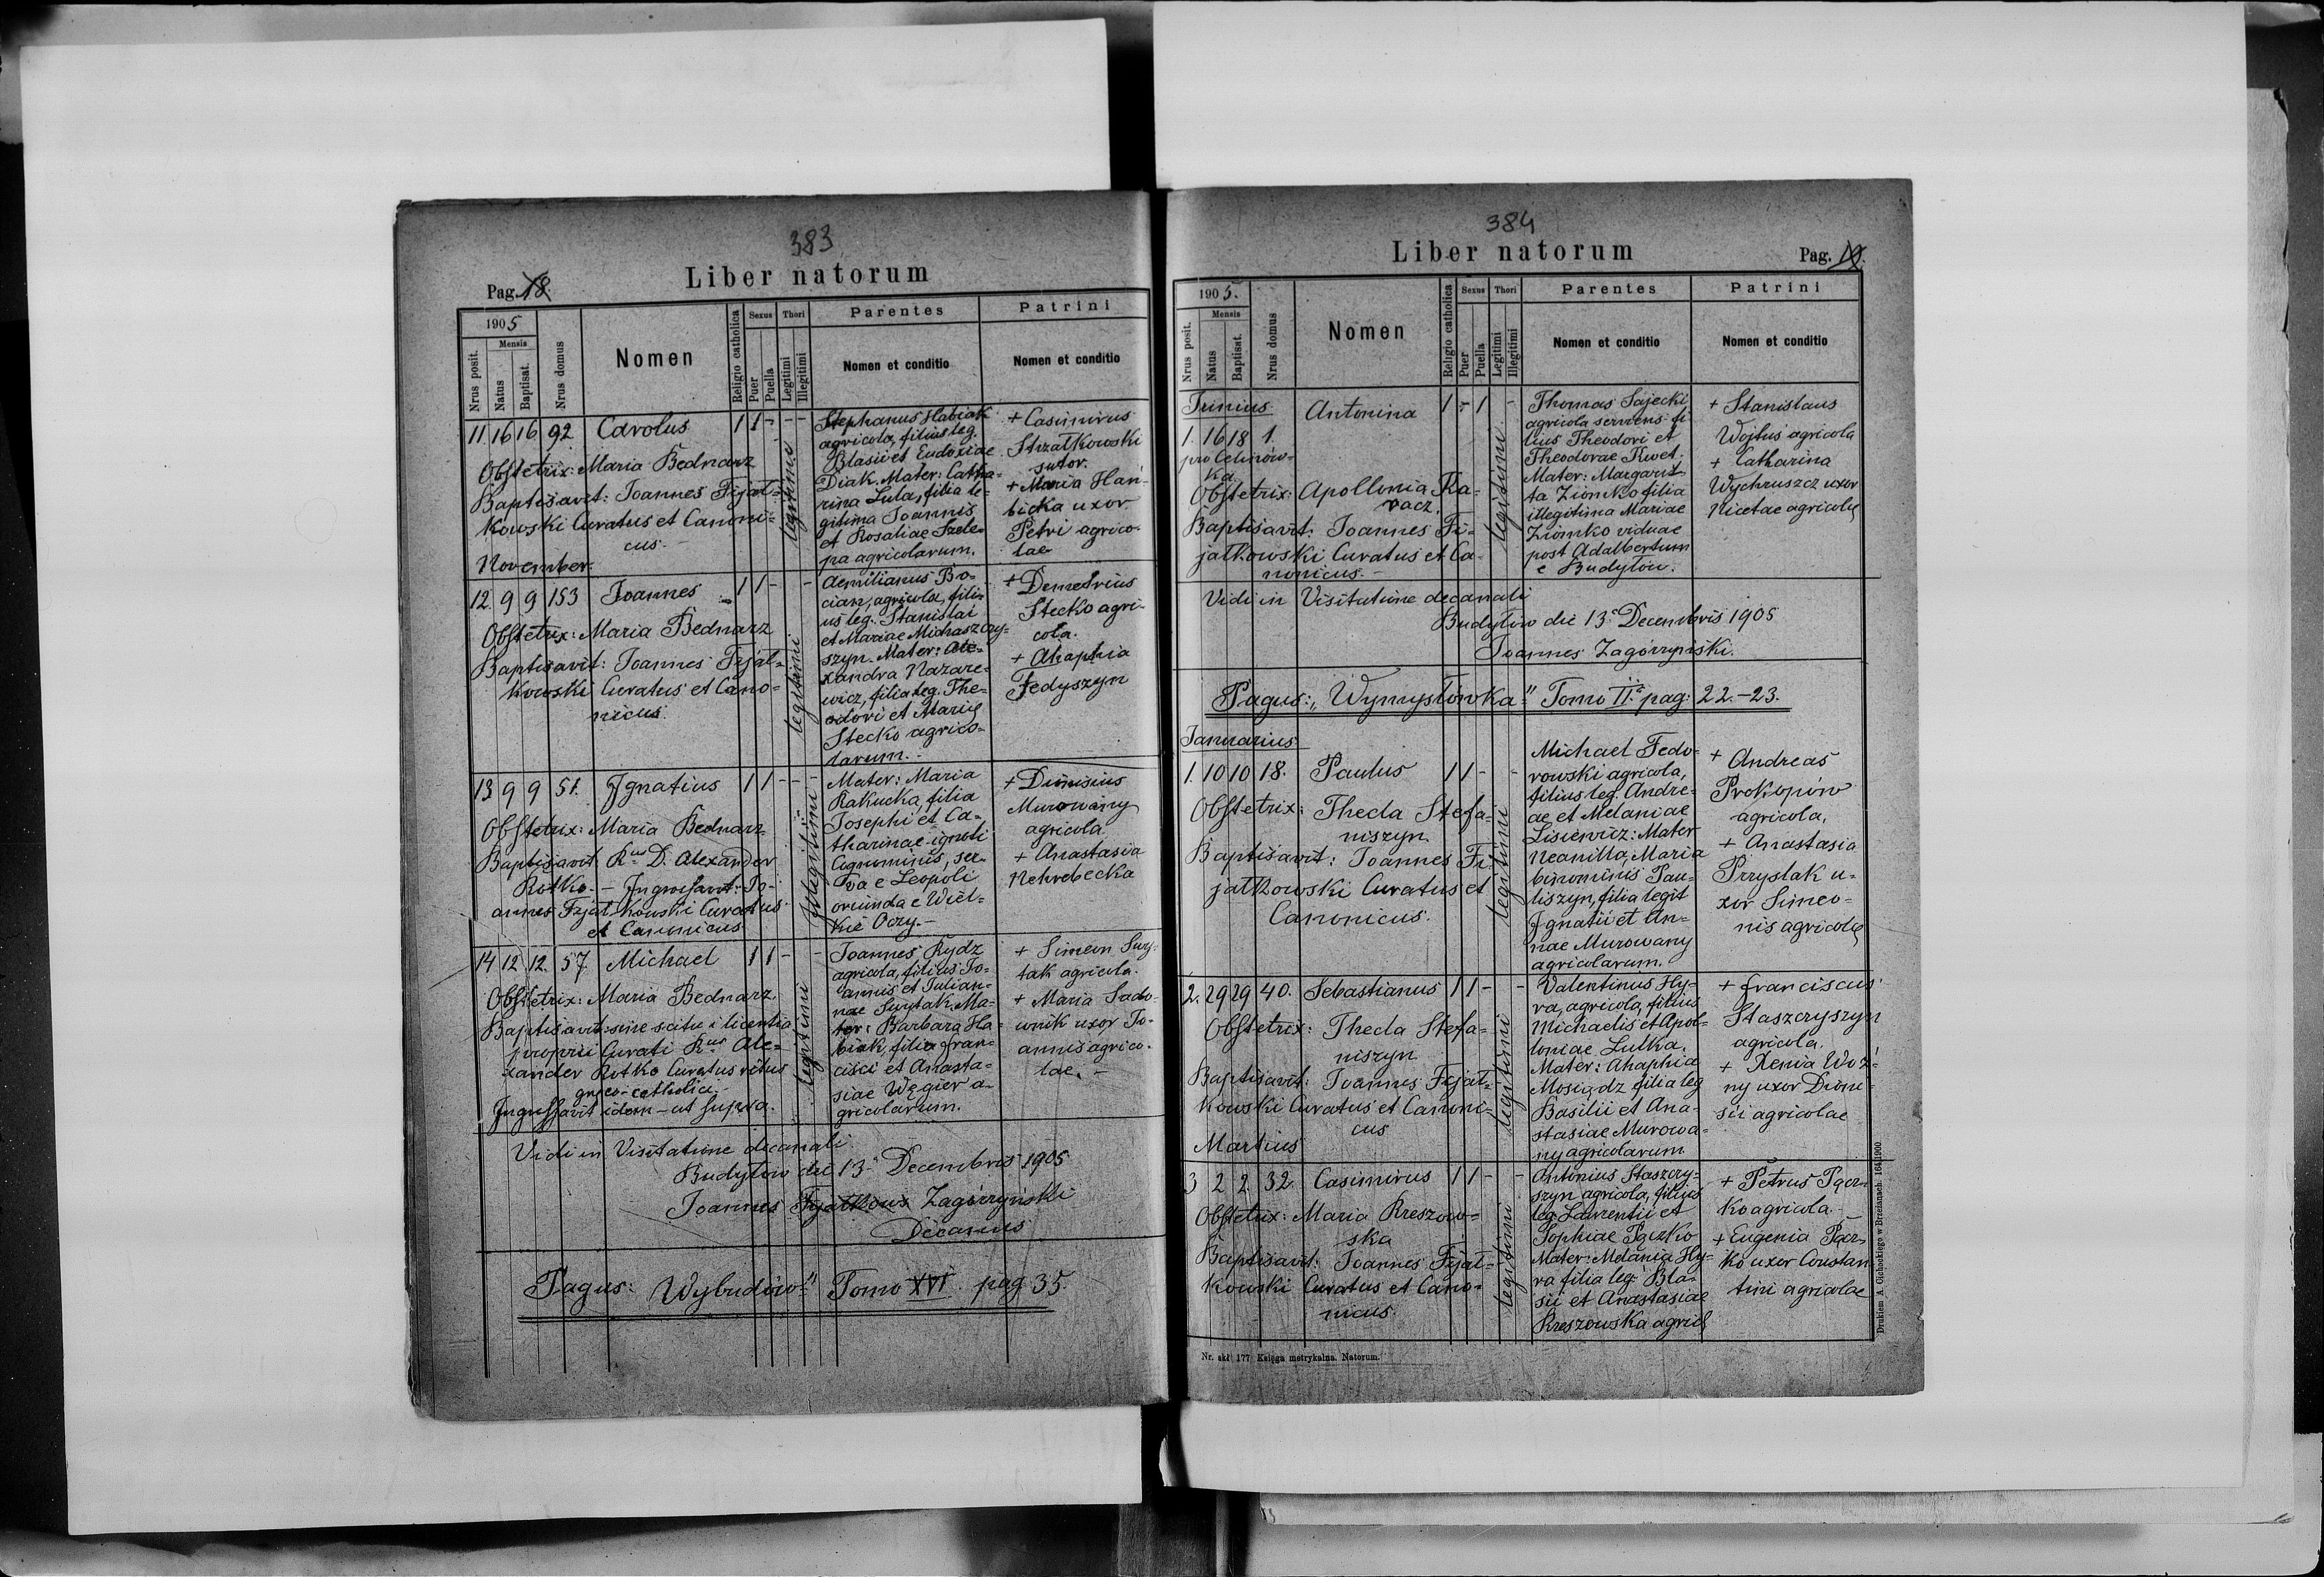 383
Pag. 18.
Liber natorum
1905
Mensis
Nrus posit.
Natus
Baptisat.
Nrus domus
Nomen
Religio catholica
Sexus
Puer
Puella
Thori
Legitimi
Illegitimi
Parentes
Nomen et conditio
Patrini
Nomen et conditio
11 16 16 92 Carolus 1 1 - - -
Obstetrix: Maria Bednarz
Baptisavit: Joannes Fijał=
kowski Curatus et Canoni=
cus.-
legitimi
Stephanus Habiak
agricola, filius leg.
Blasii et Eudoxiae
Diak. Mater: Catha-
rina Lula, filia le-
gitima Joannis
et Rosaliae Szele-
pa agricolarum.
+ Casimirus
Strzałkowski
sutor.
+ Maria Han-
bicka uxor
Petri agrico-
lae
November.
12 9 9 153 Joannes 1 1 - -
Obstetrix: Maria Bednarz
Baptisavit: Joannes Fijał=
kowski Curatus et Cano=
nicus.
legitimi
Aemilianus Bo-
cian, agricola, fili-
us leg. Stanislai
et Mariae Michaszczy-
szyn. Mater: Ale-
xandra Nazare-
wicz, filia leg. The-
odori et Mariae
Stecko agrico-
larum.-
+ Demetrius
Stecko agri-
cola.
+ Ahaphia
Fedyszyn
13 9 9 51. Ignatius 1 1 - - -
Obstetrix: Maria Bednarz
Baptisavit Rus D. Alexander
Rotko.- Ingressavit: Jo-
annes Fijałkowski Curatus
et Canonicus
Illegitimi
Mater: Maria
Rakucka, filia
Josephi et Ca-
tharinae ignoti
Cognominis, ser-
va e Leopoli
oriunda e Wiel-
kie Oczy.-
+ Dionisius
Murowany
agricola
+ Anastasia
Nehrebecka
14 12 12. 57. Michael 1 1 - -
Obstetrix: Maria Bednarz.
Baptisavit: sine scitu i licentia
proprii Curati Rus Ale=
xander Rotko Curatus ritus
graeco-catholici.-
Ingressavit idem - ut supra.
legitimi
Joannes Rydz
agricola, filius Jo=
annis et Julian-
nae Swytak. Ma-
ter: Barbara Ha-
biak, filia Fran-
cisci et Anasta-
siae Węgier a-
gricolarum.
+ Simeon Swy-
tak agricola.
+ Maria Sado-
wnik uxor Jo-
annis agrico-
lae.-
Vidi in Visitatione decanali
Budyłow die 13. Decembris 1905
Joannes Fijałkows Zagórzyński
Decanus
Pagus: Wybudów" Tomo XVI. pag. 35.
384
Liber natorum
Pag. 19.
1905.
Mensis
Nrus posit.
Natus
Baptisat.
Nrus domus
Nomen
Religio catholica
Sexus
Puer
Puella
Thori
Legitimi
Illegitimi
Parentes
Nomen et conditio
Patrini
Nomen et conditio
Junius
1. 16 18 1. Antonina 1 - 1 -
pro Celinów-
ka
Obstetrix: Apollonia Ka-
racz.
Baptisavit: Joannes Fi-
jałkowski Curatus et Ca-
nonicus.-
legitimi
Thomas Sajecki
agricola serviens fi
lius Theodori et
Theodorae Kwet.
Mater: Margari-
ta Ziomko filia
illegitima Mariae
Ziomko viduae
post Adalbertum
e Budyłow.
+ Stanislaus
Wojtus agricola
+ Catharina
Wychruszcz uxor
Nicetae agricolae
Vidi in Visitatione decanali
Budyłow die 13. Decembris 1905
Joannes Zagórzyński.
Pagus: „Wymysłówka" Tomo II. pag: 22.-23.
Januarius
1. 10 10 18. Paulus 1 1 - -
Obstetrix: Thecla Stefa-
niszyn
Baptisavit: Joannes Fi-
jałkowski Curatus et
Canonicus.
legitimi
Michael Fedo-
rowski agricola,
filius leg. Andre-
ae et Melaniae
Lisiewicz: Mater
Neanilla, Maria
binominis Pau-
liszyn, filia legit
Ignatii et An-
nae Murowany
agricolarum.
+ Andreas
Prokopów
agricola.
+ Anastasia
Przystak u-
xor Simeo-
nis agricolae
2. 29 29 40. Sebastianus 1 1 - -
Obstetrix: Thecla Stefa-
niszyn
Baptisavit: Joannes Fijał-
kowski Curatus et Canoni-
cus
legitimi
Valentinus Hy-
ra, agricola, filius
Michaelis et Apol-
loniae Lulka.
Mater: Ahaphia
Mosiądz filia leg
Basilii et Ana-
stasiae Murowa-
ny agricolarum
+ Franciscus
Staszczyszyn
agricola.
+ Xenia Woź-
ny uxor Dioni-
sii agricolae
Martius
3 2 2 32. Casimirus 1 1 - -
Obstetrix: Maria Kreszow-
ska
Baptisavit: Joannes Fijał-
kowski Curatus et Cano-
nicus.
legitimi
Antonius Staszczy-
szyn agricola, filius
leg. Laurentii et
Sophiae Pączko
Mater: Melania Hy-
ra filia leg. Bla-
sii et Anastasiae
Kreszowska agricol
+ Petrus Pącz-
ko agricola.-
+ Eugenia Pącz-
ko uxor Constan
tini agricolae
Nr. skł. 177 Księga metrykalna. Natorum.
Drukiem A. Cichockiego w Brzeżanach. 164/1900